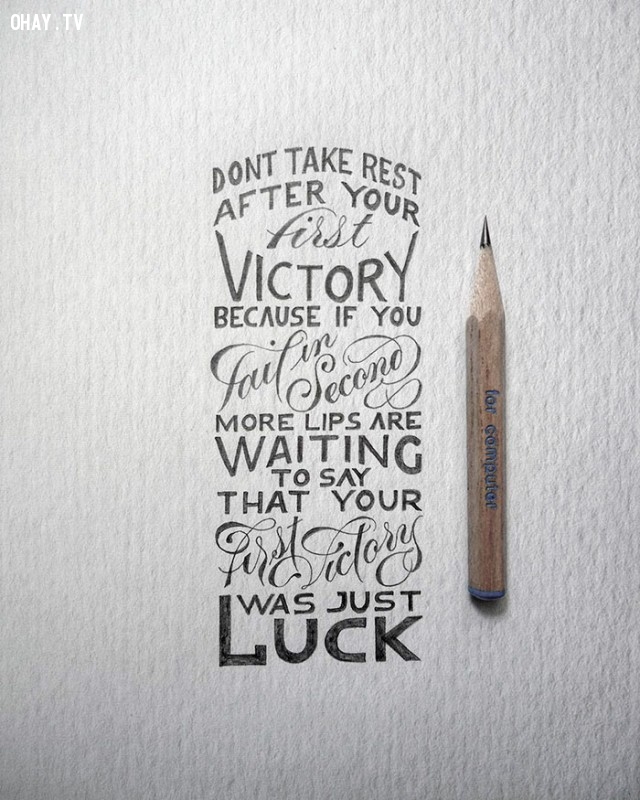 OHAY.TV
DONT TAKE REST
AFTER YOUR
first
VICTORY
BECAUSE IF YOU
fail in
Second
MORE LIPS ARE
WAITING
TO SAY
THAT YOUR
first victory
WAS JUST
LUCK
for computer